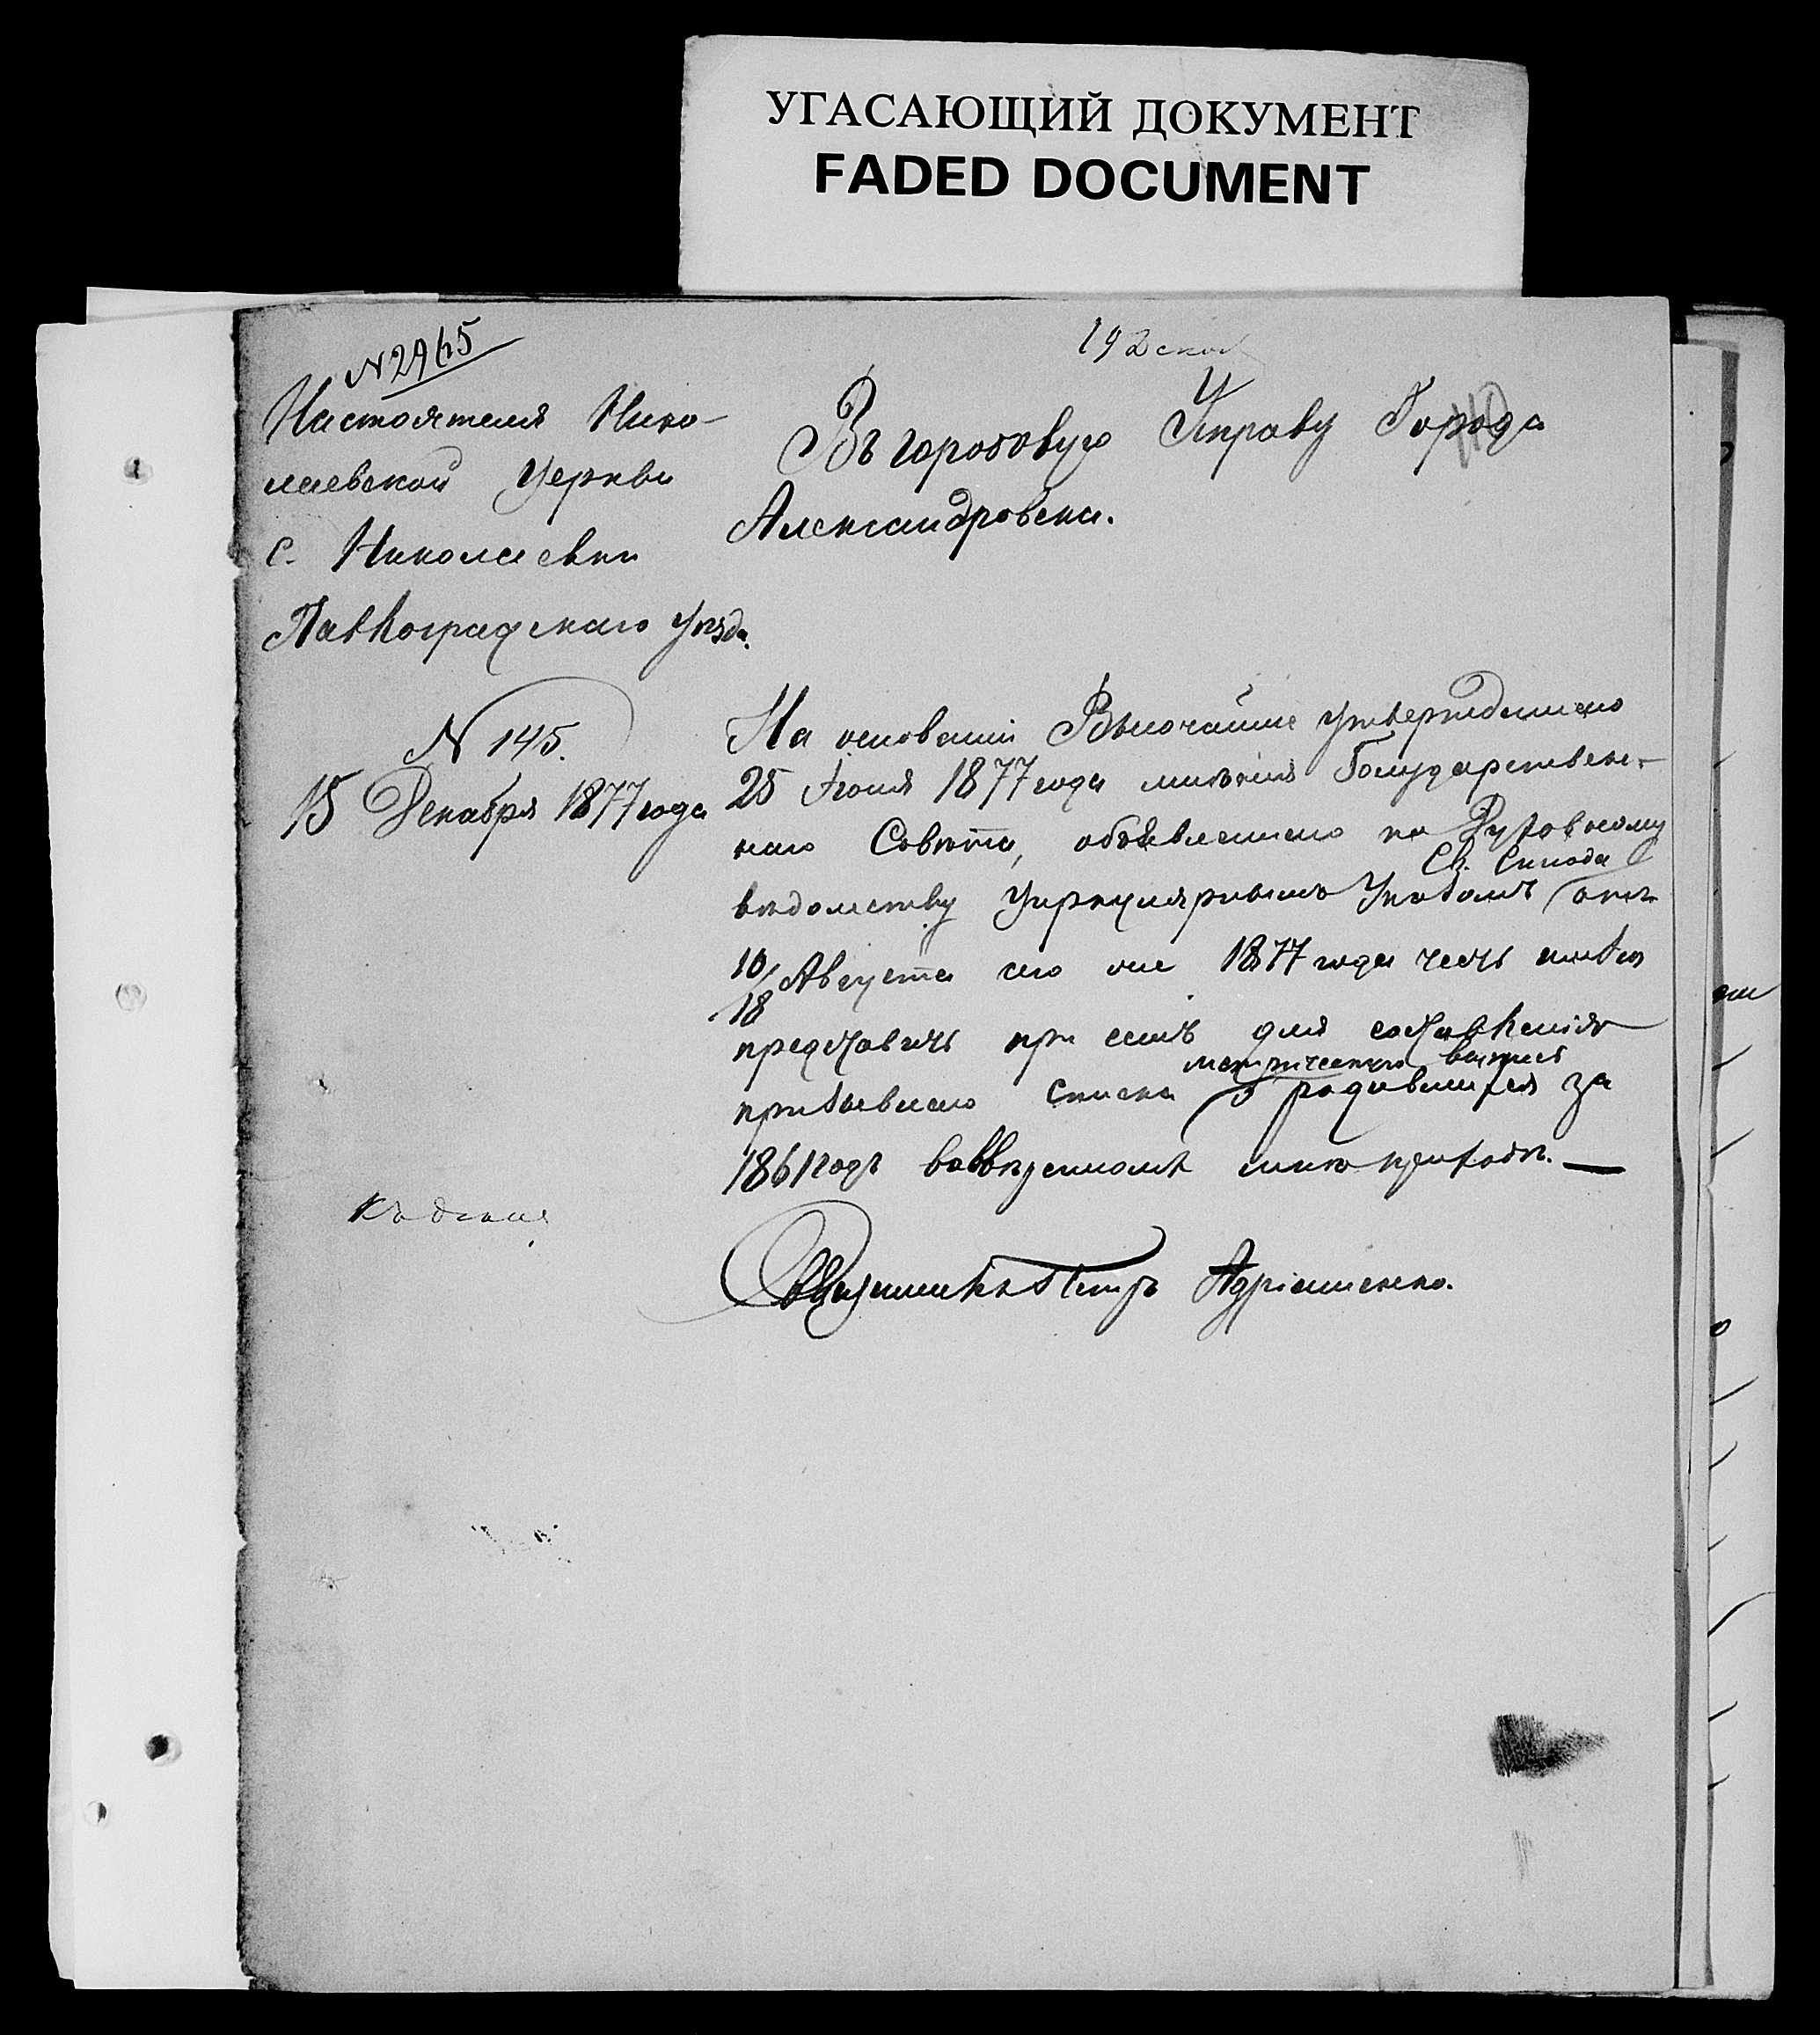 УГАСАЮЩИЙ ДОКУМЕНТ
FADED DOCUMENT
N 2965
Настоятеля Нико-
лаевской Церкви
с. Николаевки
Павлоградскаго уѣзда.
N 145.
15 Декабря 1877 года
Въ городовую Управу Города
Александровска.
На основаніи Высочайше утвержденнаго
25 Іюня 1877 года мнѣнія Государствен-
наго Совѣта, объявленнаго по Духовному
вѣдомству Циркулярнымъ Указомъ Св. Синода отъ
10/18 Августа сего же 1877 года честь имѣю
представить при семъ для составленія
призывнаго списка метрическую выпись о родившихся за
1861 годъ во ввѣренномъ мнѣ приходѣ. —
Священникъ Петръ Адріяшенко.